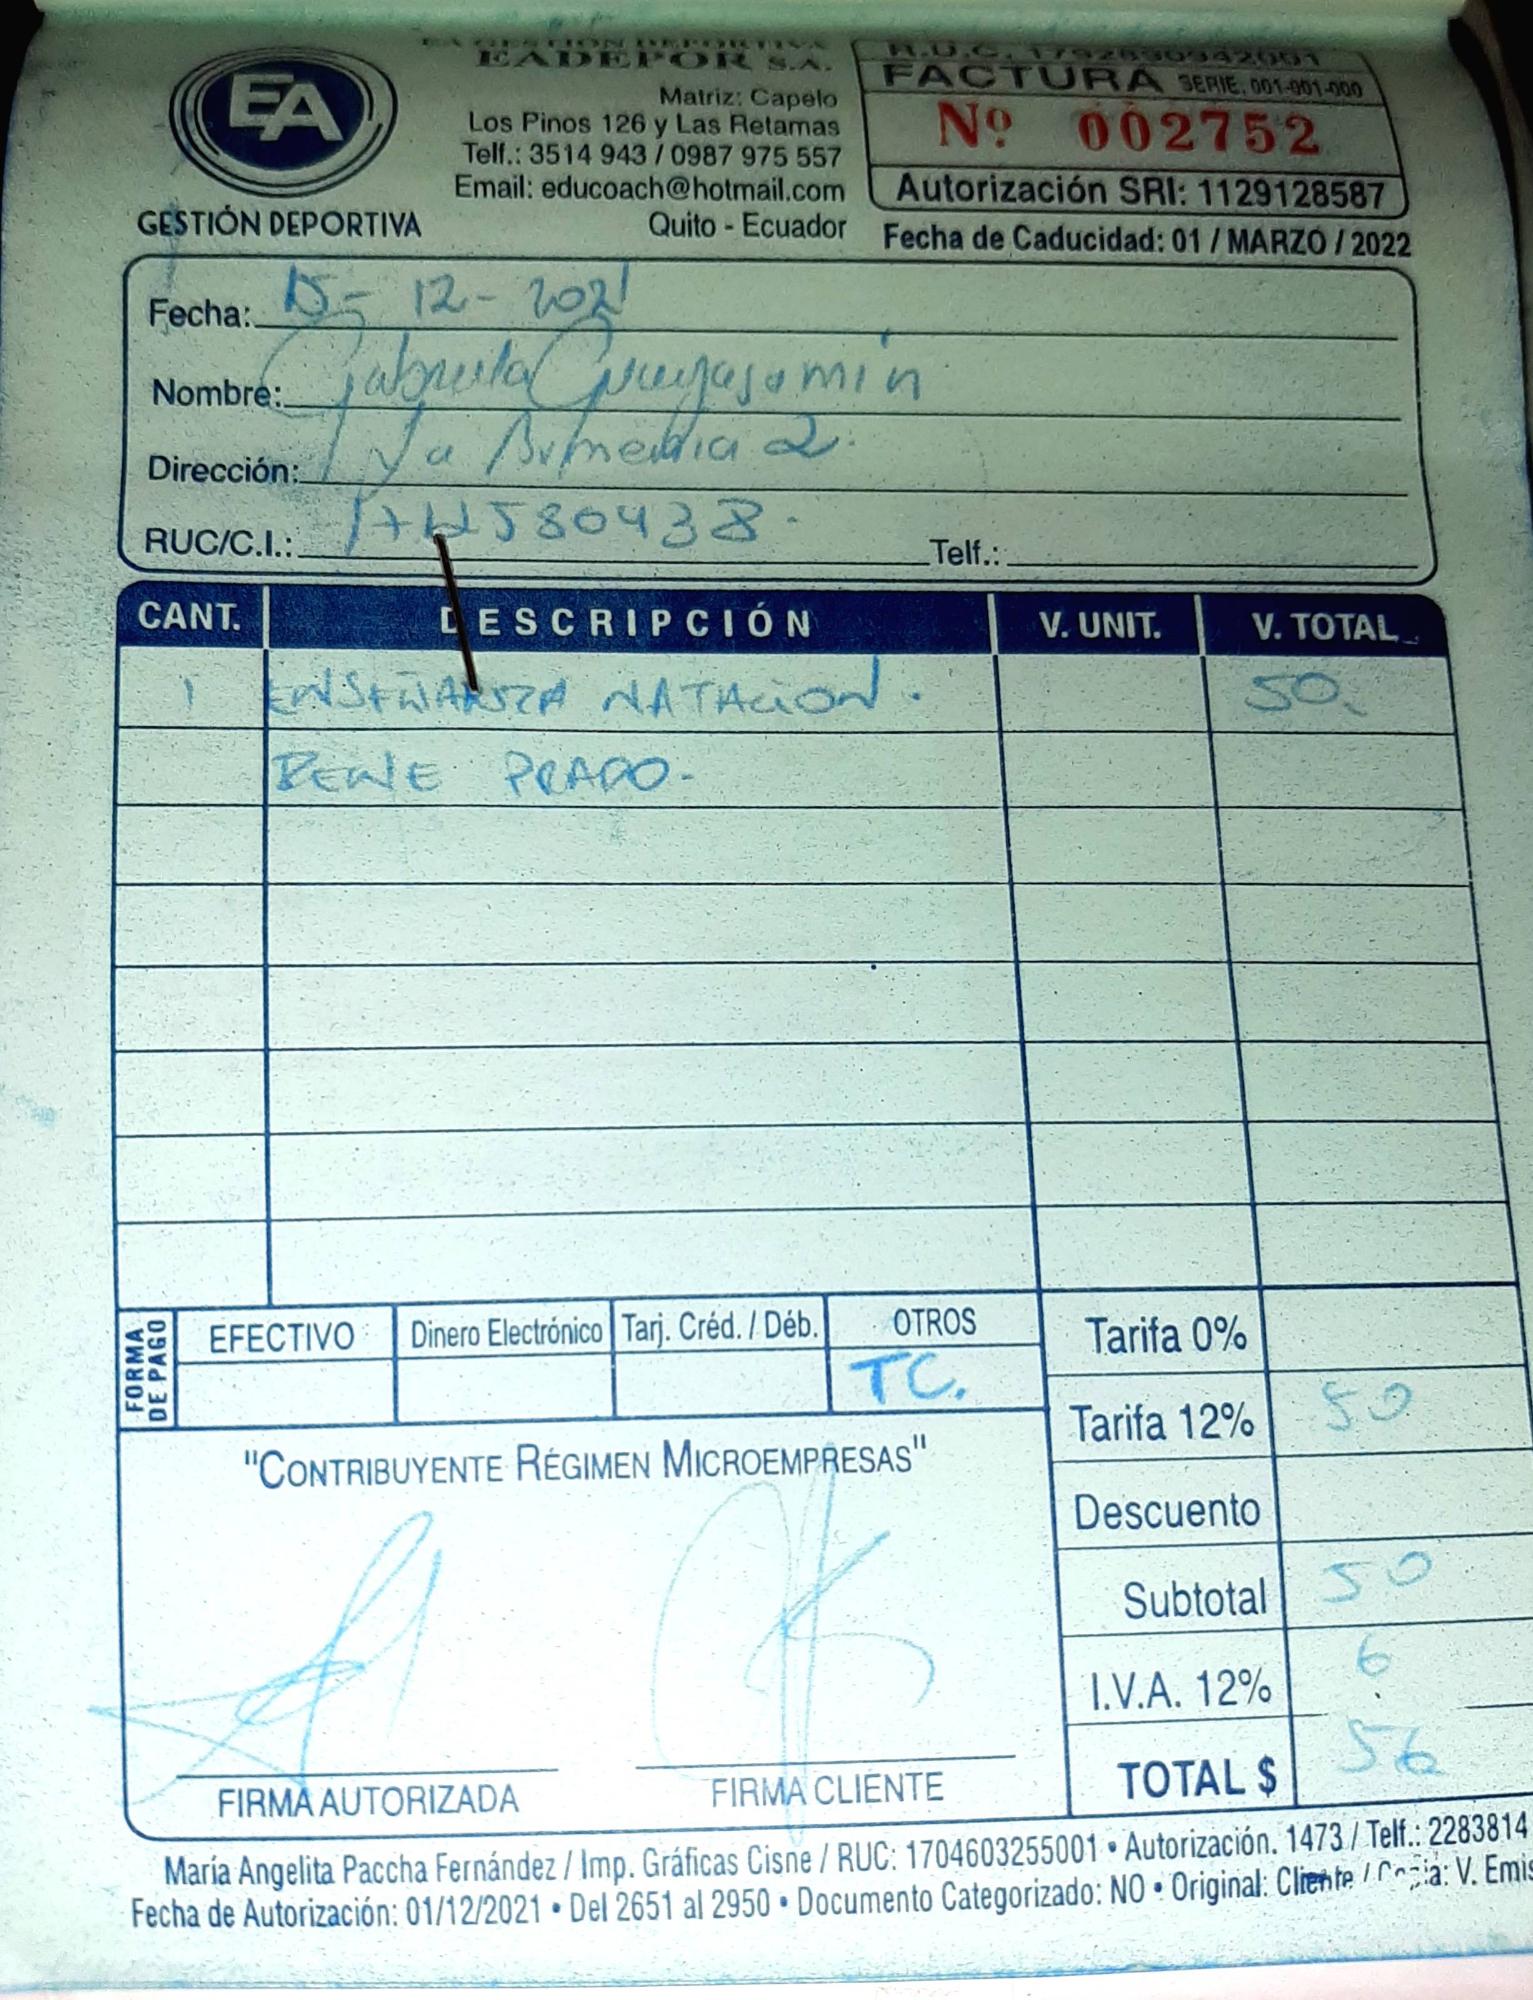 EA GESTIÓN DEPORTIVA
EADEPOR S.A.
Matriz: Capelo
Los Pinos 126 y Las Retamas
Telf.: 3514 943 / 0987 975 557
Email: educoach@hotmail.com
Quito - Ecuador
EA
GESTIÓN DEPORTIVA
R.U.C. 1792890942001
FACTURA SERIE. 001-001-000
Nº 002752
Autorización SRI: 1129128587
Fecha de Caducidad: 01 / MARZO / 2022
Fecha: 15 - 12 - 2021
Nombre: Gabriela Guayasamin
Dirección: La Armenia 2.
RUC/C.I.: Telf.:
CANT. DESCRIPCIÓN V. UNIT. V. TOTAL
1 ENSEÑANZA NATACION. 50.
RENE PRADO.
FORMA DE PAGO
EFECTIVO Dinero Electrónico Tarj. Créd. / Déb. OTROS
TC.
Tarifa 0%
Tarifa 12% 50
Descuento
Subtotal 50
I.V.A. 12% 6
TOTAL $ 56
"CONTRIBUYENTE RÉGIMEN MICROEMPRESAS"
FIRMA AUTORIZADA FIRMA CLIENTE
María Angelita Paccha Fernández / Imp. Gráficas Cisne / RUC: 1704603255001 • Autorización. 1473 / Telf.: 2283814
Fecha de Autorización: 01/12/2021 • Del 2651 al 2950 • Documento Categorizado: NO • Original: Cliente / Copia: V. Emis